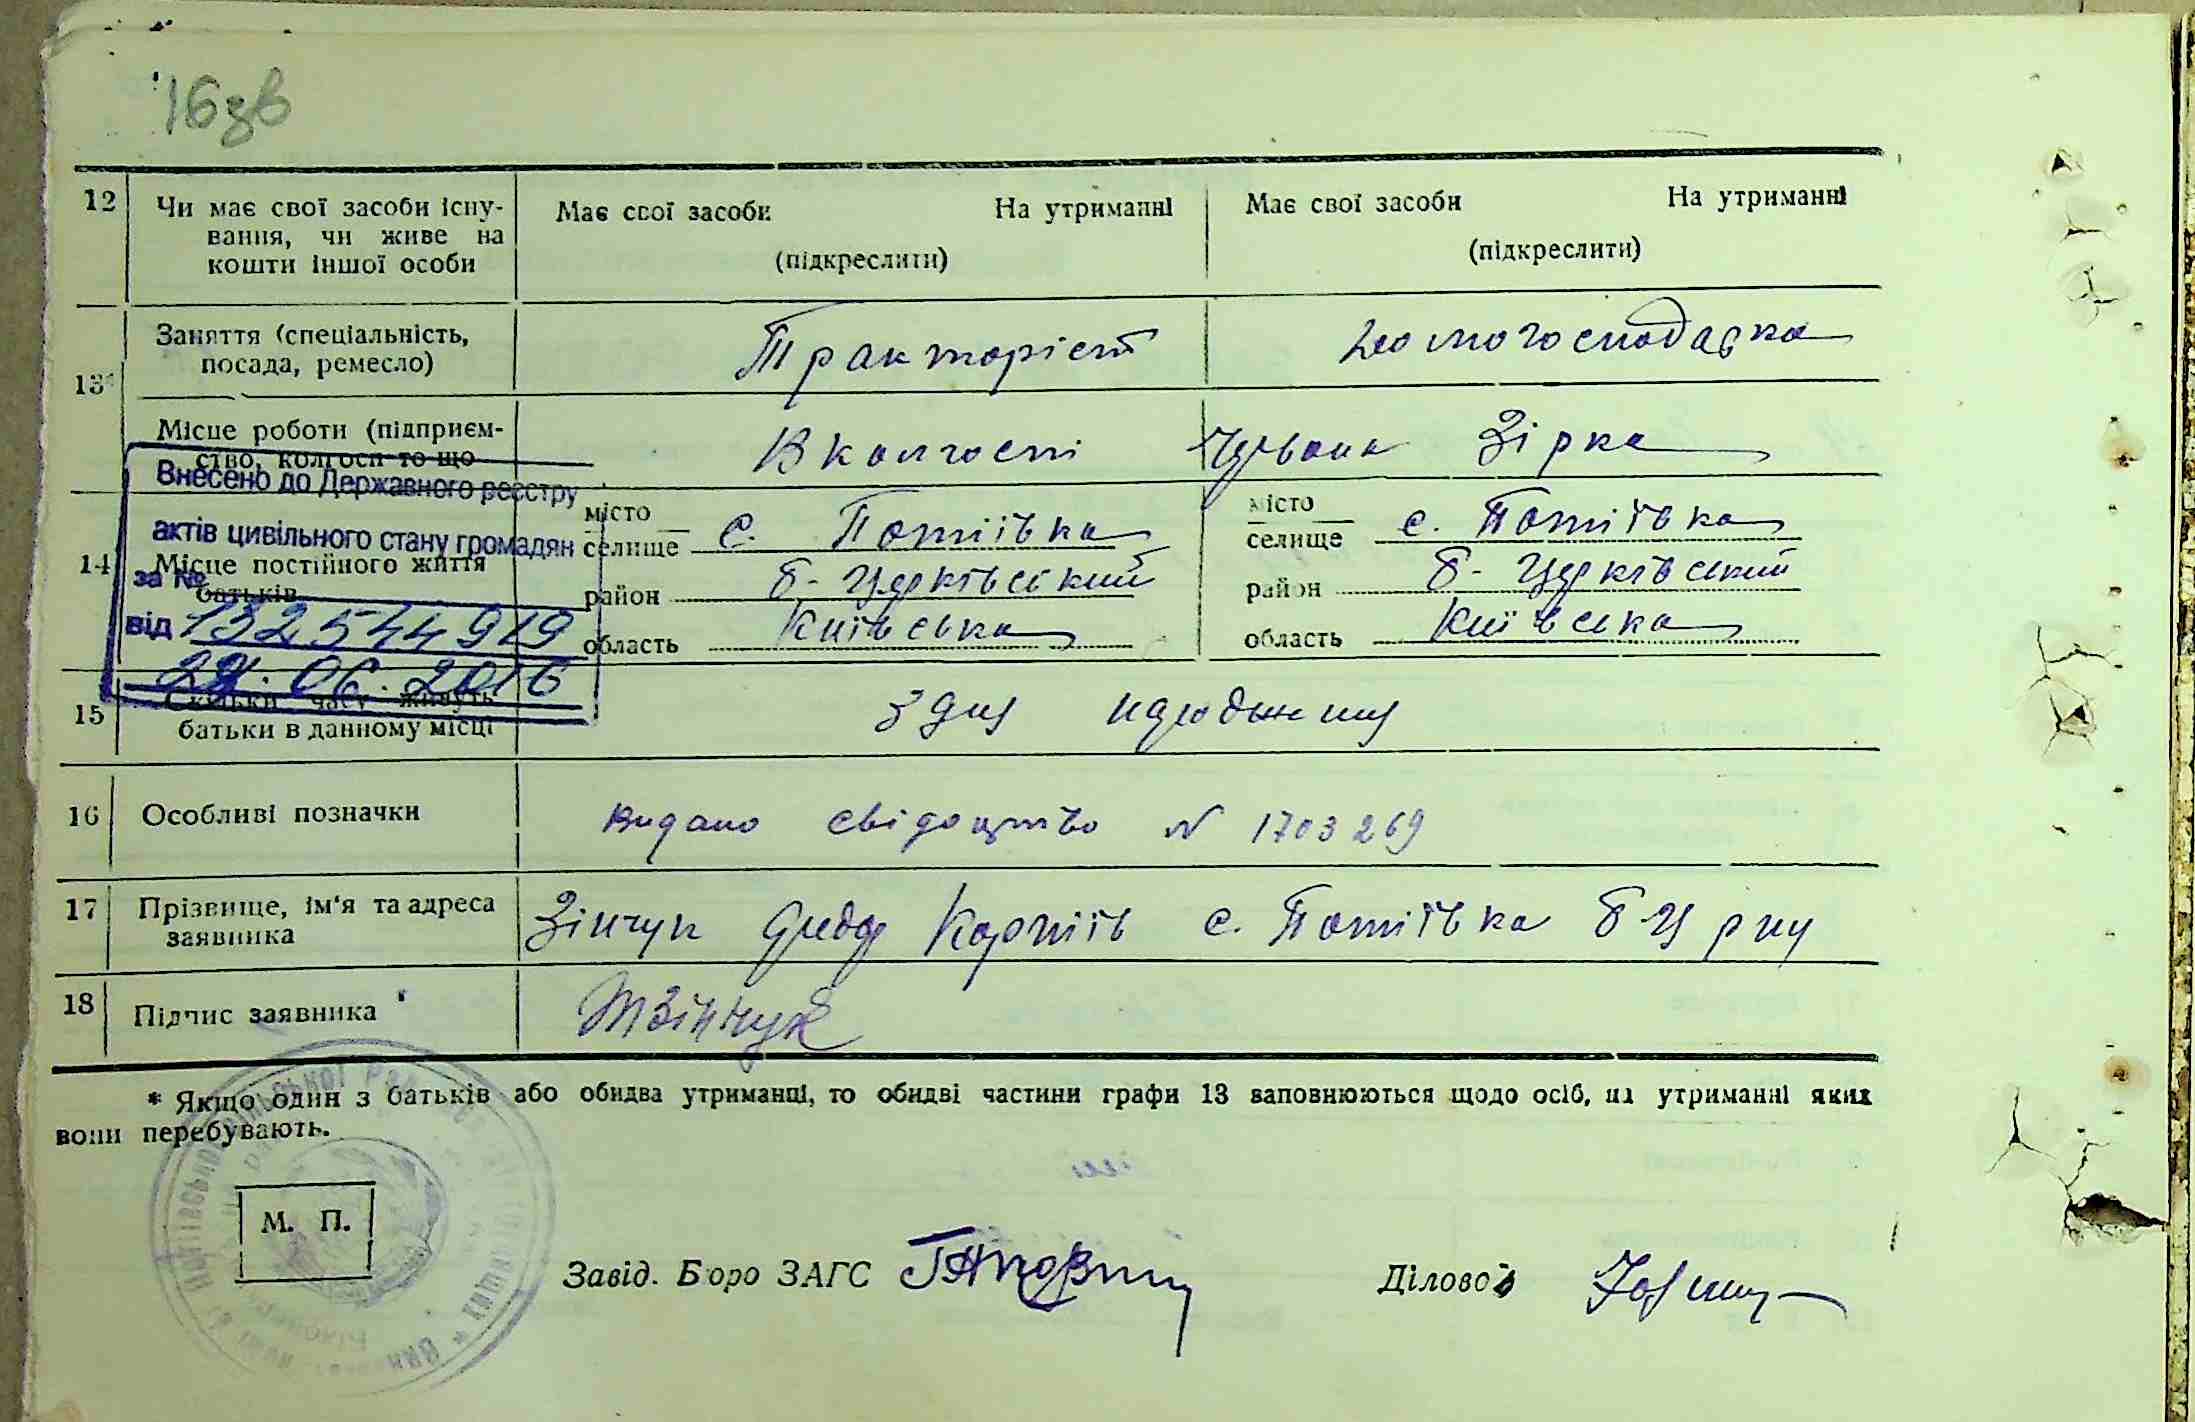 16зв
12 Чи має свої засоби існу-
вання, чи живе на
кошти іншої особи
Має свої засоби На утриманні
(підкреслити)
Має свої засоби На утриманні
(підкреслити)
13* Заняття (спеціальність,
посада, ремесло)
Тракторіст
домогосподарка
Місце роботи (підприєм-
ство, колгосп то що
В колгоспі Червона Зірка
Внесено до Державного реєстру
актів цивільного стану громадян
за №
від 132544919
06.2016
14 Місце постійного життя
батьків
місто
селище с. Потіївка
район б-Церківський
область Київська
місто
селище с. Потіївка
район б-Церківський
область Київська
15 Скільки часу живуть
батьки в данному місці
З дня народження
16 Особливі позначки
Видано свідоцтво № 1703269
17 Прізвище, ім'я та адреса
заявника
Зінчук с. Потіївка б-Ц р-ну
18 Підпис заявника
Зінчук
* Якщо один з батьків або обидва утриманці, то обидві частини графи 13 заповнюються щодо осіб, на утриманні яких
вони перебувають.
М. П.
Завід. Бюро ЗАГС
Діловод